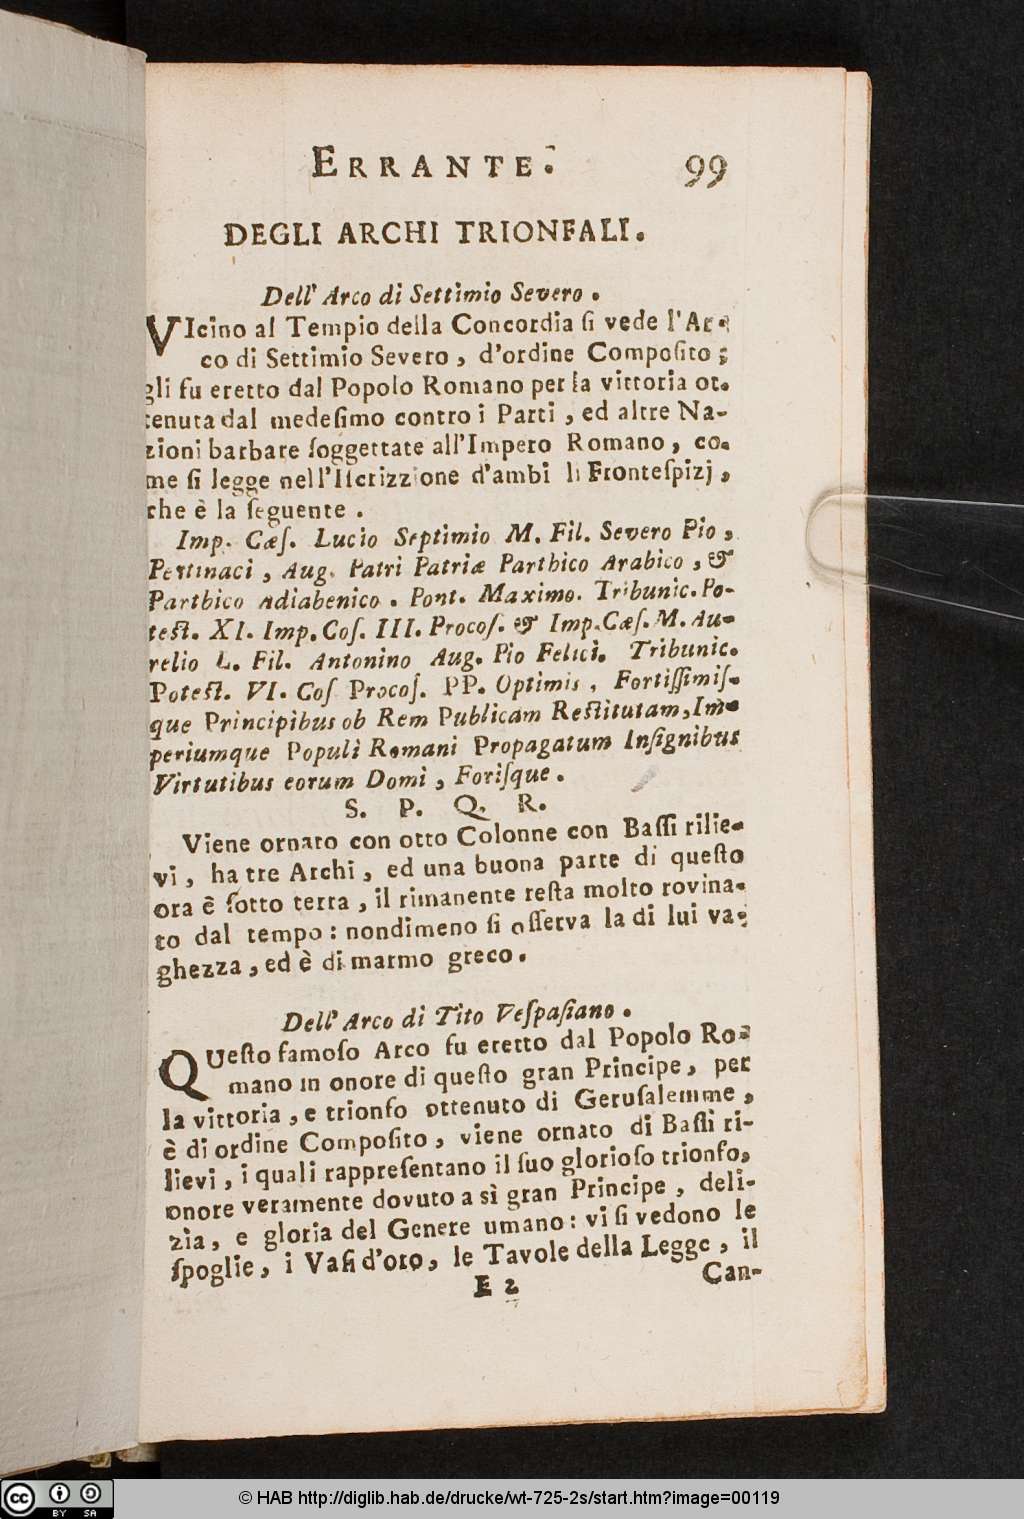 ERRANTE. 99
DEGLI ARCHI TRIONFALI.
Dell' Arco di Settimio Severo.
VIcino al Tempio della Concordia ſi vede l'Ar-
co di Settimio Severo, d'ordine Compoſito;
gli fu eretto dal Popolo Romano per la vittoria ot-
tenuta dal medeſimo contro i Parti, ed altre Na-
zioni barbare ſoggettate all'Impero Romano, co-
me ſi legge nell'Iſcrizzione d'ambi li Fronteſpizj,
che è la ſeguente.
Imp. Cæſ. Lucio Septimio M. Fil. Severo Pio,
Pertinaci, Aug. Patri Patriæ Parthico Arabico, &
Parthico Adiabenico. Pont. Maximo. Tribunic. Po-
teſt. XI. Imp. Coſ. III. Procoſ. & Imp. Cæſ. M. Au-
relio L. Fil. Antonino Aug. Pio Felici. Tribunic.
Poteſt. VI. Coſ Procoſ. PP. Optimis, Fortiſſimiſ-
que Principibus ob Rem Publicam Reſtitutam, Im-
periumque Populi Romani Propagatum Inſignibus
Virtutibus eorum Domi, Foriſque.
S. P. Q. R.
Viene ornato con otto Colonne con Baſſi rilie-
vi, ha tre Archi, ed una buona parte di queſto
ora è ſotto terra, il rimanente reſta molto rovina-
to dal tempo: nondimeno ſi oſſerva la di lui va-
ghezza, ed è di marmo greco.
Dell' Arco di Tito Veſpaſiano.
QUeſto famoſo Arco fu eretto dal Popolo Ro-
mano in onore di queſto gran Principe, per
la vittoria, e trionfo ottenuto di Geruſalemme,
è di ordine Compoſito, viene ornato di Baſſi ri-
lievi, i quali rappreſentano il ſuo glorioſo trionfo,
onore veramente dovuto a sì gran Principe, deli-
zia, e gloria del Genere umano: vi ſi vedono le
ſpoglie, i Vaſi d'oro, le Tavole della Legge, il
E 2 Can-
cc BY SA © HAB http://diglib.hab.de/drucke/wt-725-2s/start.htm?image=00119